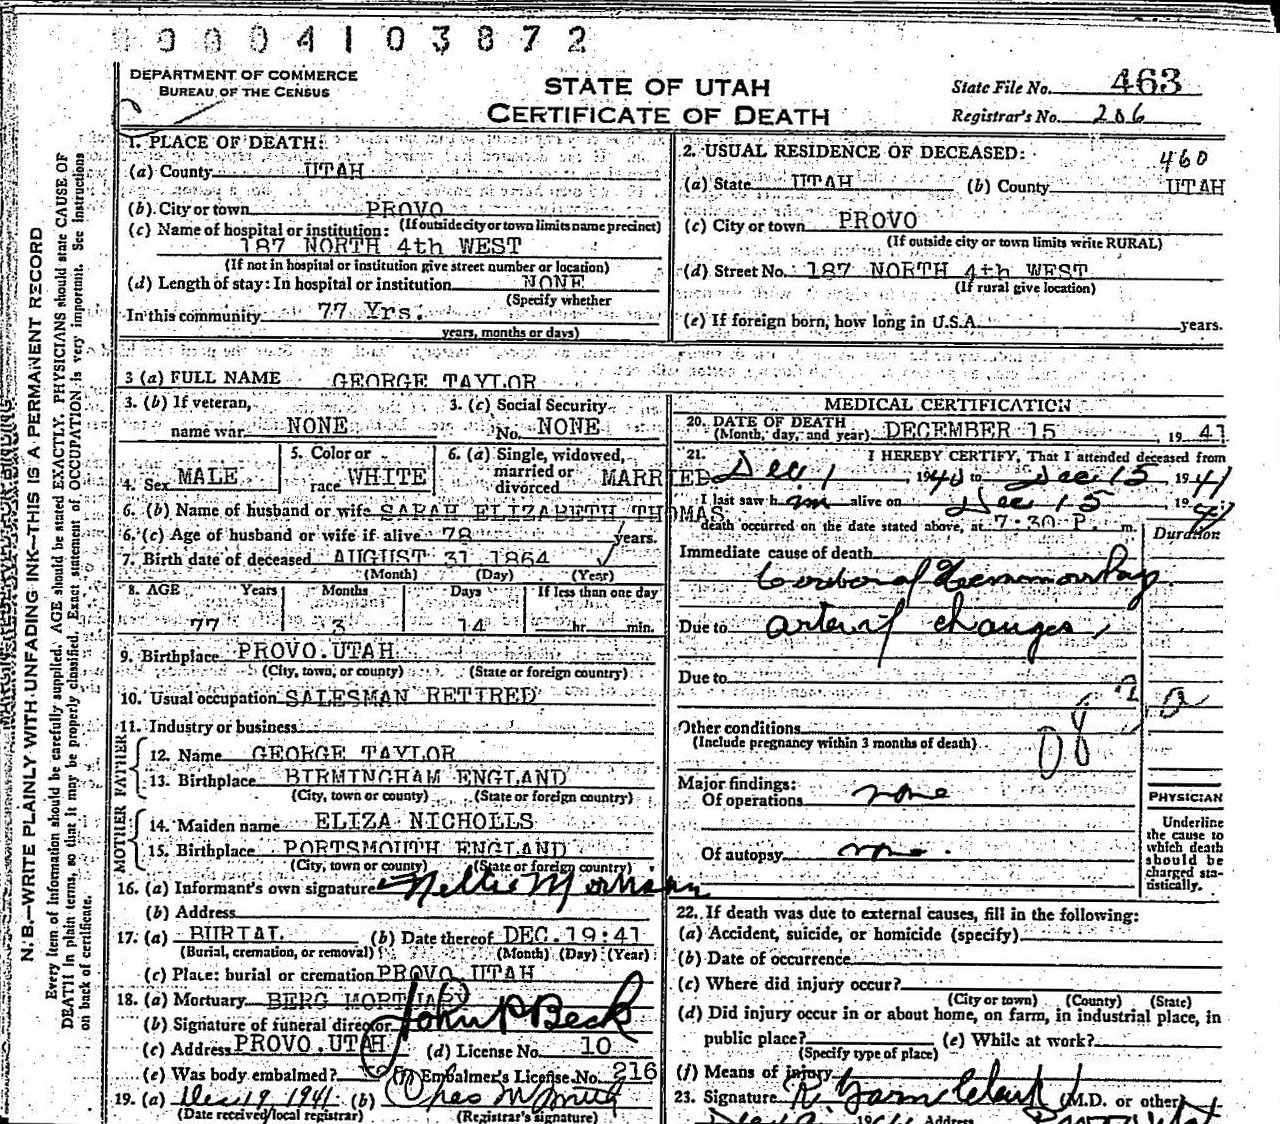 0004103872
DEPARTMENT OF COMMERCE
BUREAU OF THE CENSUS
STATE OF UTAH
CERTIFICATE OF DEATH
State File No. 463
Registrar's No. 206
1. PLACE OF DEATH:
(a) County UTAH
(b) City or town PROVO
(If outside city or town limits name precinct)
(c) Name of hospital or institution:
187 NORTH 4th WEST
(If not in hospital or institution give street number or location)
(d) Length of stay: In hospital or institution NONE
(Specify whether
In this community 77 Yrs.
years, months or days)
2. USUAL RESIDENCE OF DECEASED:
460
(a) State UTAH (b) County UTAH
(c) City or town PROVO
(If outside city or town limits write RURAL)
(d) Street No. 187 NORTH 4th WEST
(If rural give location)
(e) If foreign born, how long in U.S.A. years.
3 (a) FULL NAME GEORGE TAYLOR
3. (b) If veteran, name war NONE
3. (c) Social Security No. NONE
4. Sex MALE
5. Color or race WHITE
6. (a) Single, widowed, married or divorced MARRIED
6. (b) Name of husband or wife SARAH ELIZABETH THOMAS
6. (c) Age of husband or wife if alive 78 years.
7. Birth date of deceased AUGUST 31 1864
(Month) (Day) (Year)
8. AGE Years Months Days If less than one day
77 3 14 hr. min.
9. Birthplace PROVO.UTAH
(City, town, or county) (State or foreign country)
10. Usual occupation SALESMAN RETIRED
11. Industry or business
FATHER
12. Name GEORGE TAYLOR
13. Birthplace BIRMINGHAM ENGLAND
(City, town or county) (State or foreign country)
MOTHER
14. Maiden name ELIZA NICHOLLS
15. Birthplace PORTSMOUTH ENGLAND
(City, town or county) (State or foreign country)
16. (a) Informant's own signature Nellie
(b) Address
17. (a) BURIAL (b) Date thereof DEC.19:41
(Burial, cremation, or removal) (Month) (Day) (Year)
(c) Place: burial or cremation PROVO UTAH
18. (a) Mortuary BERG MORTUARY
(b) Signature of funeral director John P Beck
(c) Address PROVO.UTAH (d) License No. 10
(e) Was body embalmed? (f) Embalmer's License No. 216
19. (a) Dec 19 1941 (b) Chas M Smith
(Date received local registrar) (Registrar's signature)
MEDICAL CERTIFICATION
20. DATE OF DEATH
(Month, day, and year) DECEMBER 15, 1941
21. I HEREBY CERTIFY, That I attended deceased from
Dec 1 1940 to Dec 15 1941
I last saw him alive on Dec 15 1941
death occurred on the date stated above, at 7:30 P. m.
Duration
Immediate cause of death
Cerebral Haemorrhage
Due to arterial changes
Due to
Other conditions
(Include pregnancy within 3 months of death)
Major findings:
Of operations none
Of autopsy none.
PHYSICIAN
Underline
the cause to
which death
should be
charged sta-
tistically.
22. If death was due to external causes, fill in the following:
(a) Accident, suicide, or homicide (specify)
(b) Date of occurrence
(c) Where did injury occur?
(City or town) (County) (State)
(d) Did injury occur in or about home, on farm, in industrial place, in
public place? (e) While at work?
(Specify type of place)
(f) Means of injury
23. Signature (M.D. or other)
Address
N. B.—WRITE PLAINLY WITH UNFADING INK—THIS IS A PERMANENT RECORD
Every item of information should be carefully supplied. AGE should be stated EXACTLY. PHYSICIANS should state CAUSE OF
DEATH in plain terms, so that it may be properly classified. Exact statement of OCCUPATION is very important. See instructions
on back of certificate.